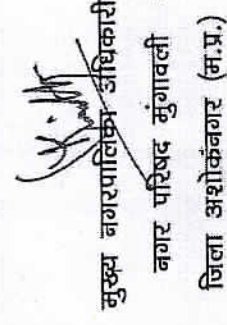 मुख्य नगरपालिका अधिकारी
नगर परिषद मुंगावली
जिला अशोकनगर (म.प्र.)